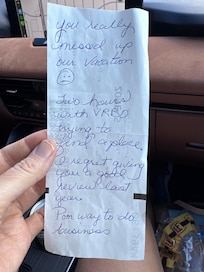 you really
messed up
our vacation
☹
Two hours
with VRBO
trying to
find a place.
I regret giving
you a good
review last
year.
Poor way to do
business